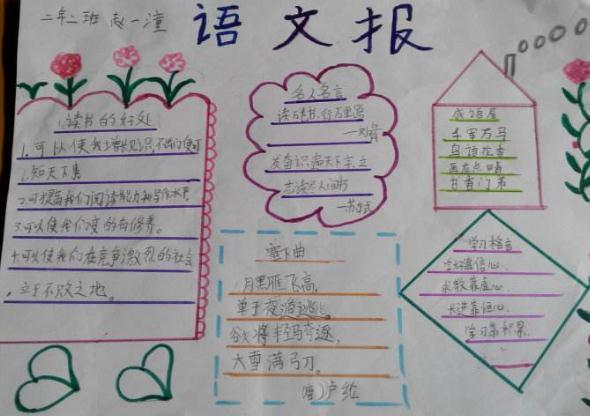 二年二班 赵一潼
语文报
读书的好处
1.可以使我增长见识,不出门便可
知天下事
2.可提高我们阅读能力和写作水平
3.可以使我们变的有修养。
4.可以使我们在竞争激烈的社会
立于不败之地。
名人名言
读万卷书,行万里路
—刘彝
发奋识遍天下字,立
志读尽人间书
—苏轼
塞下曲
月黑雁飞高,
单于夜遁逃。
欲将轻骑逐,
大雪满弓刀。
唐)卢纶
成语屋
千军万马
鸟语花香
画龙点睛
学习格言
学好靠信心,
求教靠虚心,
长进靠恒心,
学习靠积累。